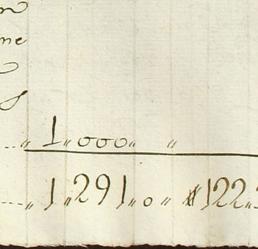 me
„ 1„000„ „
„ 1„291„0 „ 122„